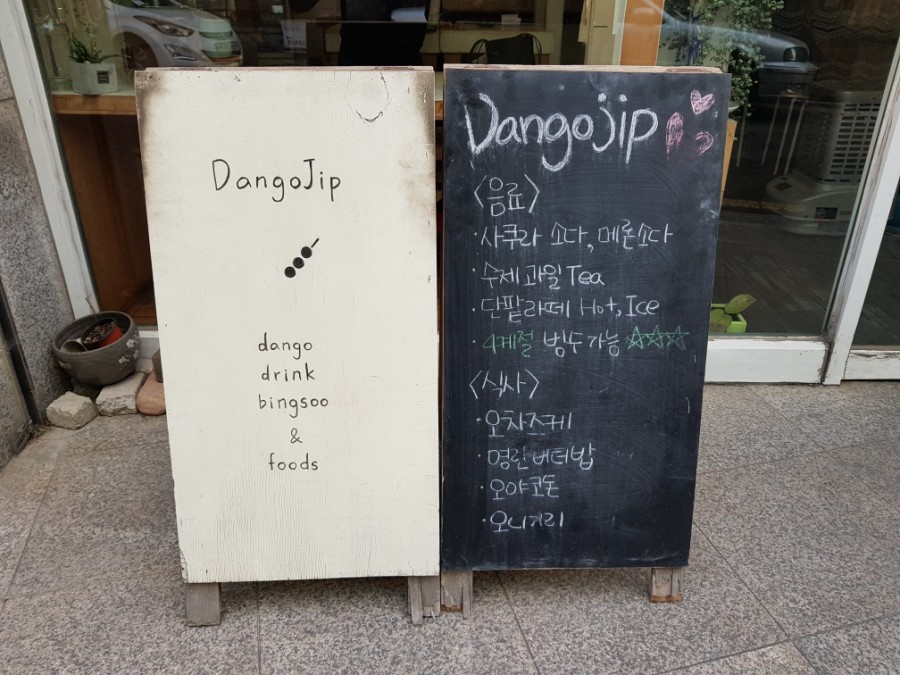 DangoJip
dango
drink
bingsoo
&
foods
Dangojip
<음료>
·사쿠라 소다, 메론소다
·수제 과일 Tea
·단팥라떼 Hot, Ice
·4계절 빙수 가능 ☆☆☆
<식사>
·오차즈케
·명란버터밥
·오야코돈
·오니기리